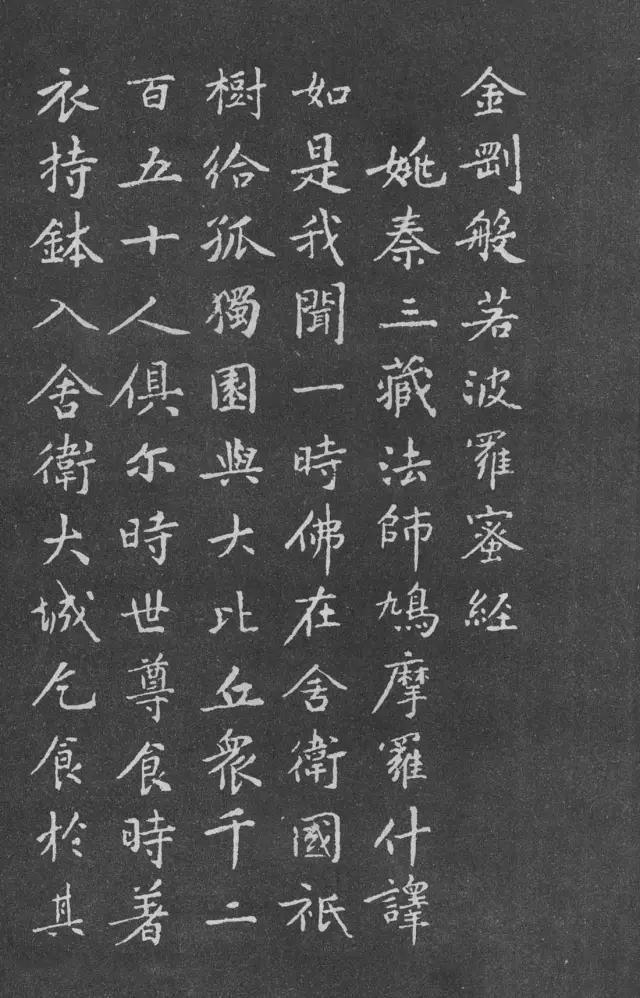 金剛般若波羅蜜経
姚秦三藏法師鳩摩羅什譯
如是我聞一時佛在舍衛國祇
樹給孤獨園與大比丘眾千二
百五十人俱尔時世尊食時著
衣持鉢入舍衛大城乞食於其